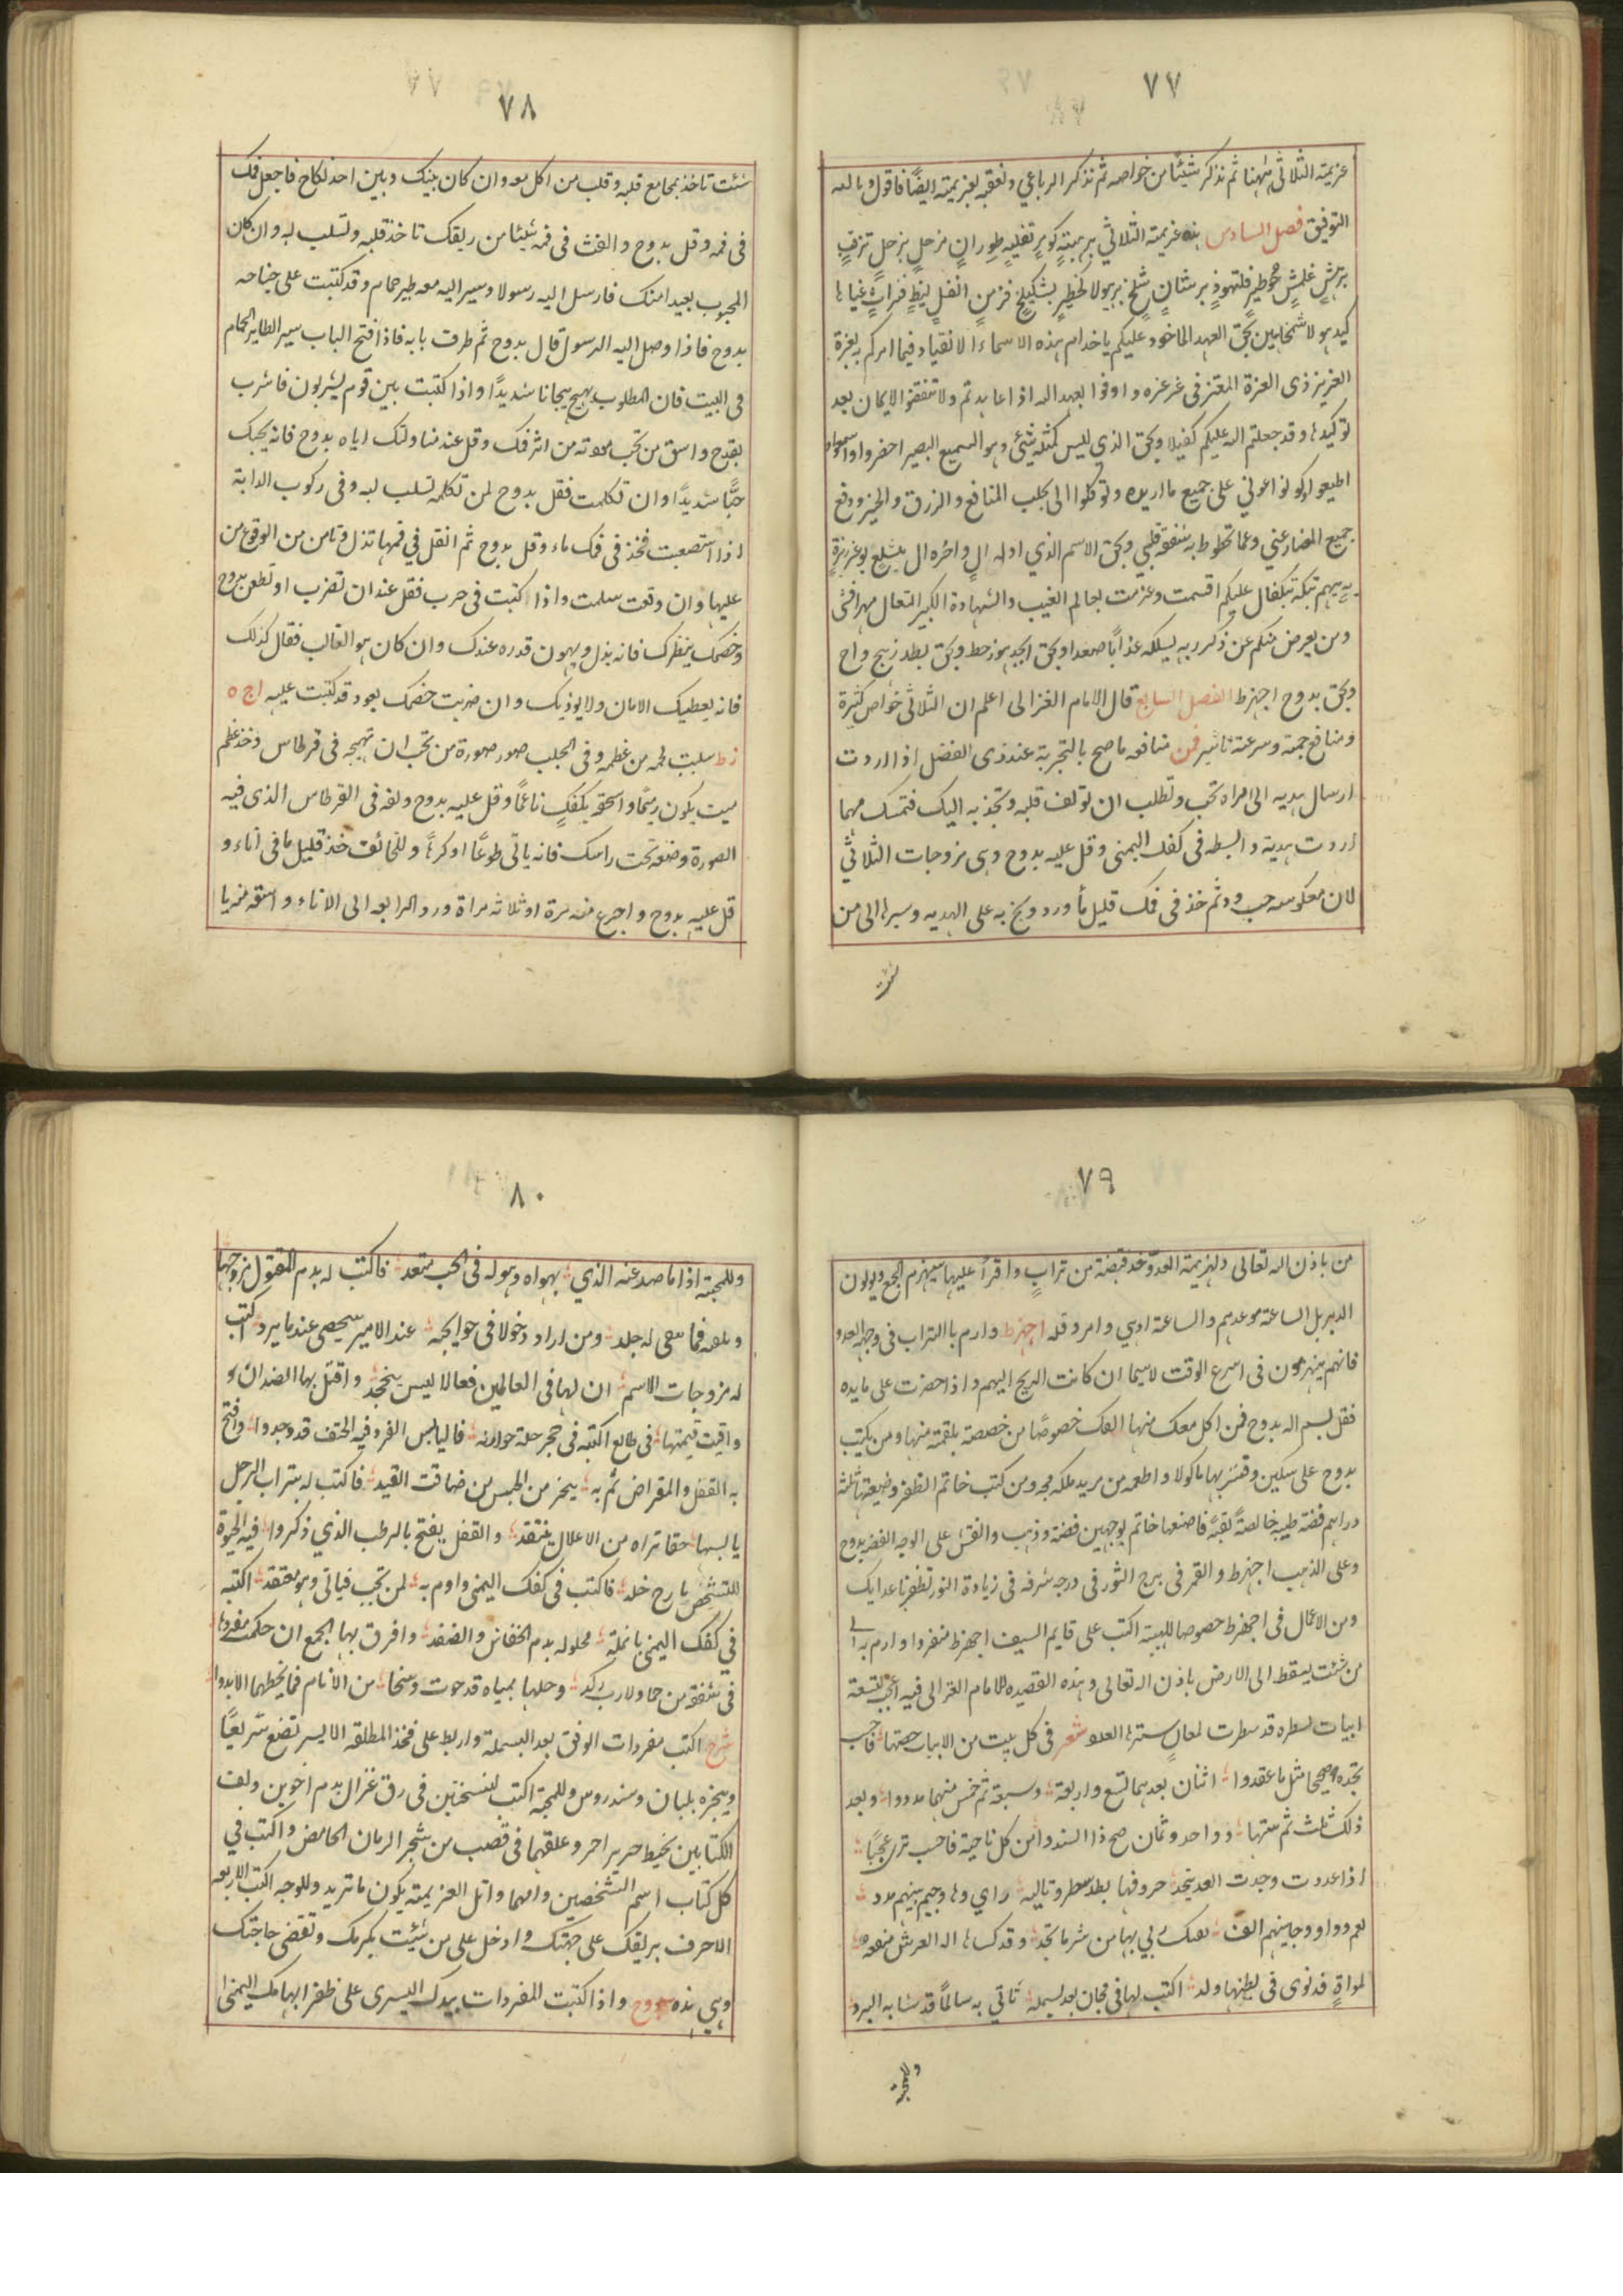 ٧٧
عزيمته الثلاثي ههنا ثم نذكر شيئًا من خواصه ثم نذكر الرباعي ونعقبه بعزيمته ايضًا فاقول وبالله
التوفيق فصل السادس هذه عزيمته الثلاثي برهيتهٍ كريرٍ تتليهٍ طورانٍ مزجلٍ بزجلٍ ترقبٍ
برهشٍ غلمشٍ حوطيرٍ قلنهودٍ برشانٍ شلخ برهيولا كظهيرٍ بشكيلخٍ قزمزٍ انغلليطٍ قبراتٍ غياها
كيدهولا شمخاهين بحق العهد الماخوذ عليكم ياخدام هذه الاسماء الا نقياد فيما امركم به بعزة
العزيز ذى العزة المعتز فى عز عزه واوفوا بعهد الله اذا عاهدتم ولا تنقضوا الايمان بعد
توكيدها وقد جعلتم الله عليكم كفيلا وبحق الذي ليس كمثله شئ وهو السميع البصير احضروا واسمعوا
اطيعوا وكونوا عوني على جميع ما اريده وتوكلوا الى بجلب المنافع والرزق والخير ودفع
جميع المضار عني وعما تحوط به شفقة قلبي وبحق الاسم الذي اوله ال واخره ال
تتكه بتكفال عليكم اقسمت وعزمت بعالم الغيب والشهادة الكبير المتعال
ومن يعرض منكم عن ذكر ربه يسلكه عذابًا صعدا وبحق ابجد هوز حطى وبحق بطد زهج واح
وبحق بدوح اجهزط الفصل السابع قال الامام الغزالى اعلم ان الثلاثى خواص كثيرة
ومنافع جمة وسرعة تاثير فمن منافعه ما صح بالتجربة عند ذى الفضل اذا اردت
ارسال هديه الى امراه تحب وتطلب ان تولف قلبه وتجذبه اليك فتمسك مهما
اردت هدية والبسطه فى كفك اليمنى وقل عليه بدوح وهى مزوجات الثلاثي
لان معكوسه حب ود ثم خذ فى فمك قليل مأ ورد وبخ به على الهديه وسيرها الى من
شئت
٧٨
شئت تاخذ بمجامع قلبه وقلب من اكل معه وان كان بينك وبين احد نكاح فاجعل فمك
فى فمه وقل بدوح وانفث فى فمه شيئا من ريقك تاخذ قلبه وتسلب لبه وان كان
المحبوب بعيدا منك فارسل اليه رسولا وسير اليه معه طير حمام وقد كتبت على جناحه
بدوح فاذا وصل اليه الرسول قال بدوح ثم طرق بابه فاذا فتح الباب سير الطاير الحمام
فى البيت فان المطلوب يهيج هيجانا شديدًا واذا كتبت بين قوم يشربون فاشرب
بقدح واسق من تحب معونه من اثر فمك وقل عند مناولتك اياه بدوح فانه يحبك
حبًّا شديدًا وان تكلمت فقل بدوح لمن تكلمه تسلب لبه وفى ركوب الدابة
اذا استصعبت فخذ فى فمك ماء وقل بدوح ثم اتفل في فمها تذل وتامن من الوقوع من
عليها وان وقعت سلمت واذا كتبت فى حرب فقل عند ان تضرب او تطعن بدوح
وخصمك ينظرك فانه يذل ويهون قدره عندك وان كان هو الغالب فقال كذلك
فانه يعطيك الامان ولا يوذيك وان ضربت خصمك بعود قد كتبت عليه اج ه
زط سلبت لحمه من عظمه وفى الجلب صور صورة من تحب ان تهيجه فى قرطاس وخذ عظم
ميت يكون رميمًا واسحقه بكفكٍ ناعمًا وقل عليه بدوح ولفه فى القرطاس الذى فيه
الصورة وضعه تحت راسك فانه ياتى طوعًا او كرهًا وللخائف خذ قليل ما فى اناء و
قل عليه بدوح واجرع منه مرة او ثلاثه مراة ورد الرابعه الى الاناء واسقه منه يا
٧٩
من باذن الله تعالى ولهزيمة العدو خذ قبضة من ترابٍ واقرأ عليها سيهزم الجمع ويولون
الدبر بل الساعة موعدهم والساعة ادهي وامر وقله اجهزط وارم بالتراب فى وجه العدو
فانهم ينهزمون فى اسرع الوقت لاسيما ان كانت الريح اليهم واذا حضرت على مايده
فقل بسم الله بدوح فمن اكل معك منها الفك خصوصًا من خصصته بلقمة منها ومن يكتب
بدوح على سكين وقشر بها ماكولا واطعمه من يريد ملكه محبه ومن كتب خاتم الظفر وضيعته ثلثة
دراهم فضة طيبه خالصة نقيّة فاصنعها خاتم بوجهين فضة وذهب وانقش على الوجه الفضه بدوح
وعلى الذهب اجهزط والقمر فى برج الثور فى درجه شرفه فى زيادة النور تظفر باعدايك
ومن الاعمال فى اجهزط خصوصا للهيبة اكتب على قايم السيف اجهزط منفردا وارم به الى
من شئت يسقط الى الارض باذن الله تعالى وهذه القصيده للامام الغزالى فيه اعجب تسعة
ابيات بسطره قد سطرت لمعالٍ سترها العدو شعر فى كل بيت من الابيات حصتها فاحسب
تجده صحيحا مثل ما عقدوا اثنان بعدهما تسع واربعة وسبعة ثم خمس منهما مددوا وبعد
ذلك ثلث ثم ستها وواحد وثمان صح ذا السند وا من كل ناحية فاحسب ترى عجبًا
اذا عددت وجدت العد يتحد حروفها بطد سطر وتاليه زاي وها وجيم بينهم مدد
ثم ودوا ووجا بينهم الف يفك ربي بها من شرما تجد وقد كساها اله العرش منفعة
لمراةٍ قد ثوى فى بطنها ولد اكتب لها فى فجان بعد بسمله تاتي به سالماً قد شابه البرد
وللمحبة
٨٠
وللمحبة اذا ما صد عنه الذي يهواه وهو له فى الحب متعد فاكتب له بدم المقتول مزوجها
ومن اراد دخولا فى حوايجه عند الامير سيحصى عند ما يرد اكتب
له مزوجات الاسم ان لها فى العالمين فعالا ليس ينجحد واقتل بها الضد ان
واقيت قيمتها فى طالع اكتبه فى حجر فاليابس الفرد فيه الحتف قد وجدوا وافتح
به القفل والمقراض ثم به ينجز من الحبس من ضاقت القيد فاكتب له بتراب الرجل
يالبسها حقا تراه من الاغلال ينتقد والقفل يفتح بالرطب الذي ذكروا فيه الحيوة
للتشخص يا رح خلد فاكتب فى كفك اليمنى واوم به لمن تحب فياتى وهو معتقد اكتبه
في كفك اليمنى بانملة محلوله بدم الخفاش والضفد وافرق بها الجمع ان حكمت مفردها
فى شقفة من حما ولارب ركد وحلها بمياه قد حوت وسخا من الانام فما يخطهما الابدوا
شرح اكتب مفردات الوفق بعد البسملة واربط على فخذ المطلقه الايسر تضع سريعًا
وبخره بلبان وسندروس وللمحبة اكتب نسختين فى رق غزال بدم اخوين ولف
الكتابين بخيط حرير احمر وعلقهما فى قصب من شجر الرمان الحامض واكتب في
كل كتاب اسم الشخصين وامهما واتل العزيمة يكون ما تريد وللوجه اكتب الاربعه
الاحرف بريقك على جبهتك وادخل على من شيئت يكرمك وتقضى حاجتك
وهى هذه بدوح واذا كتبت المفردات بيدك اليسرى على ظفر ابهامك اليمنى